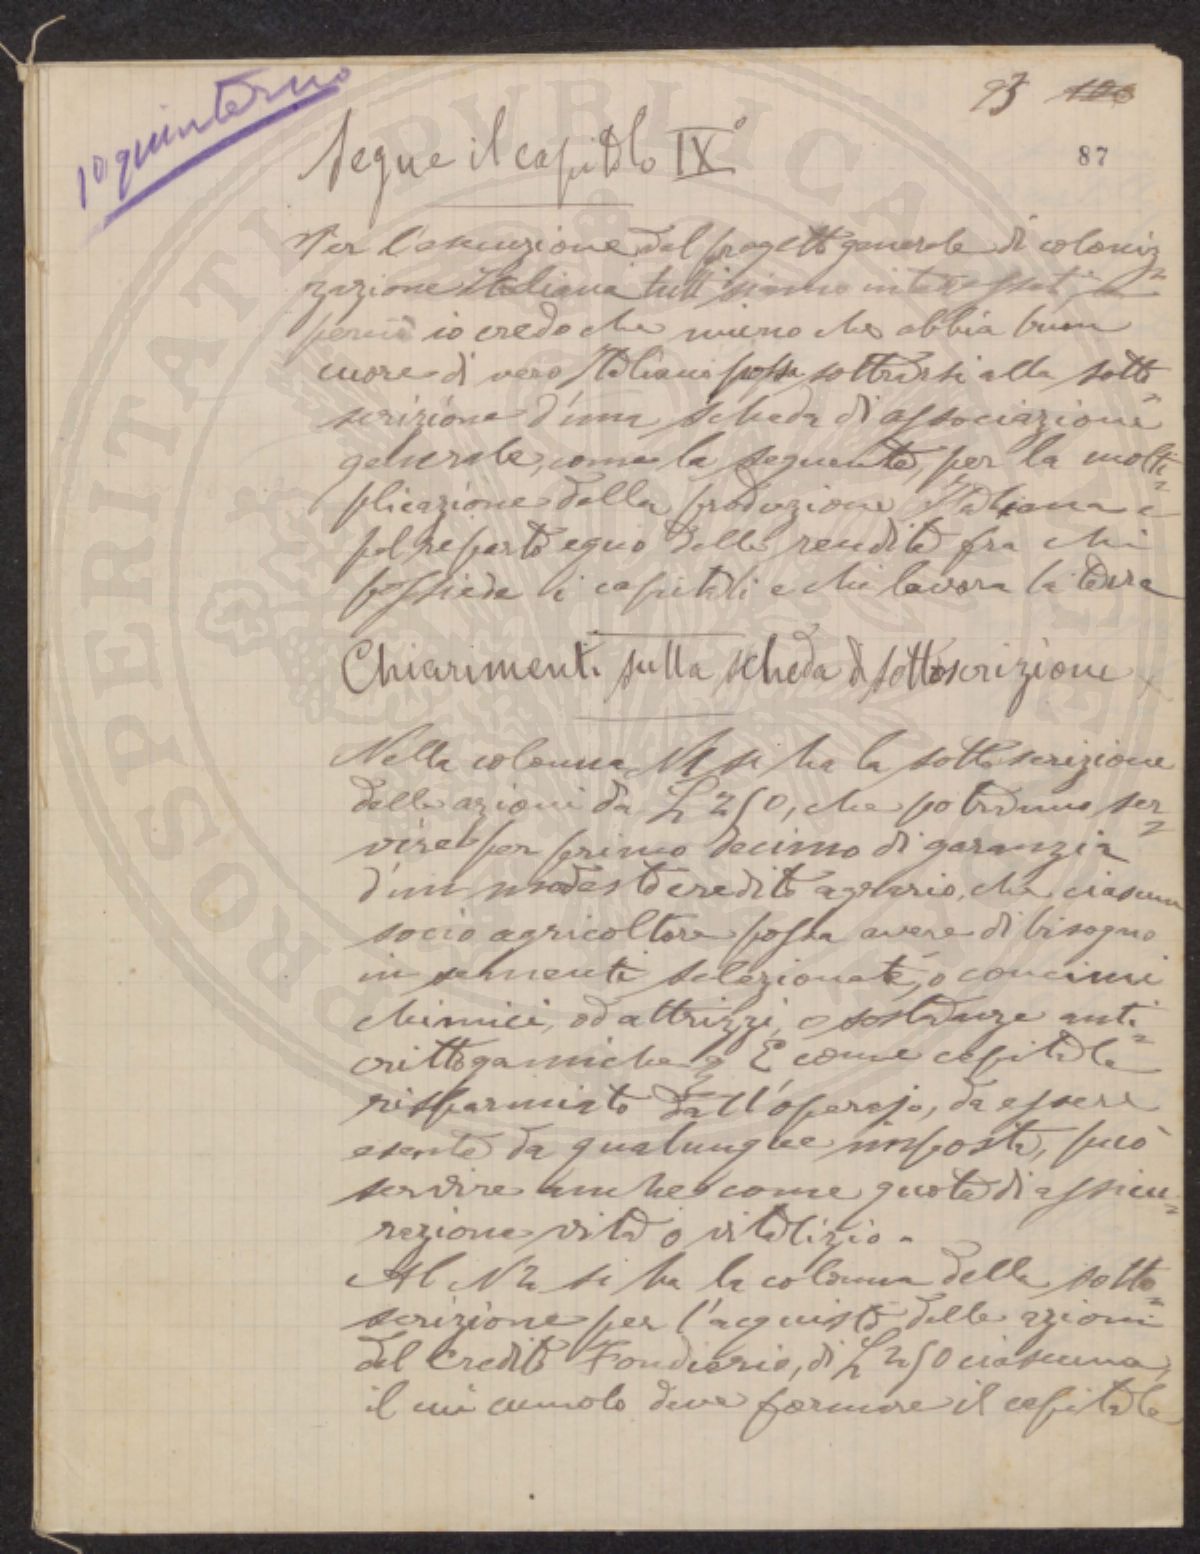 1º quinterno
93 100
87
Segue il capitolo IXº
Per l'esecuzione del progetto generale di coloniz=
zazione Italiana tutti siamo interessati, e
perciò io credo che niuno che abbia buon
cuore di vero Italiano possa sottrarsi alla sotto=
scrizione d'una scheda di associazione
generale, come la seguente, per la molti=
plicazione della produzione Italiana e
pel reparto equo delle rendite fra chi
possiede i capitali e chi lavora la terra
Chiarimenti sulla scheda di sottoscrizione
Nella colonna N1 si ha la sottoscrizione
delle azioni da £ 250, che potranno ser=
vire per primo decimo di garanzia
d'un modesto credito agrario, che ciascun
socio agricoltore possa avere di bisogno
in sementi selezionate, o concimi
chimici, od attrizzi, o sostanze anti=
crittogamiche. E come capitale
risparmiato dall'operajo, da essere
esente da qualunque imposta, può
servire anche come quota di assicu=
razione vita o vitalizio.
Al N2 si ha la colonna della sotto=
scrizione per l'acquisto delle azioni
del Credito Fondiario, di £ 250 ciascuna,
il cui cumolo deve formare il capitale
PROSPERITATI PVBLICAE